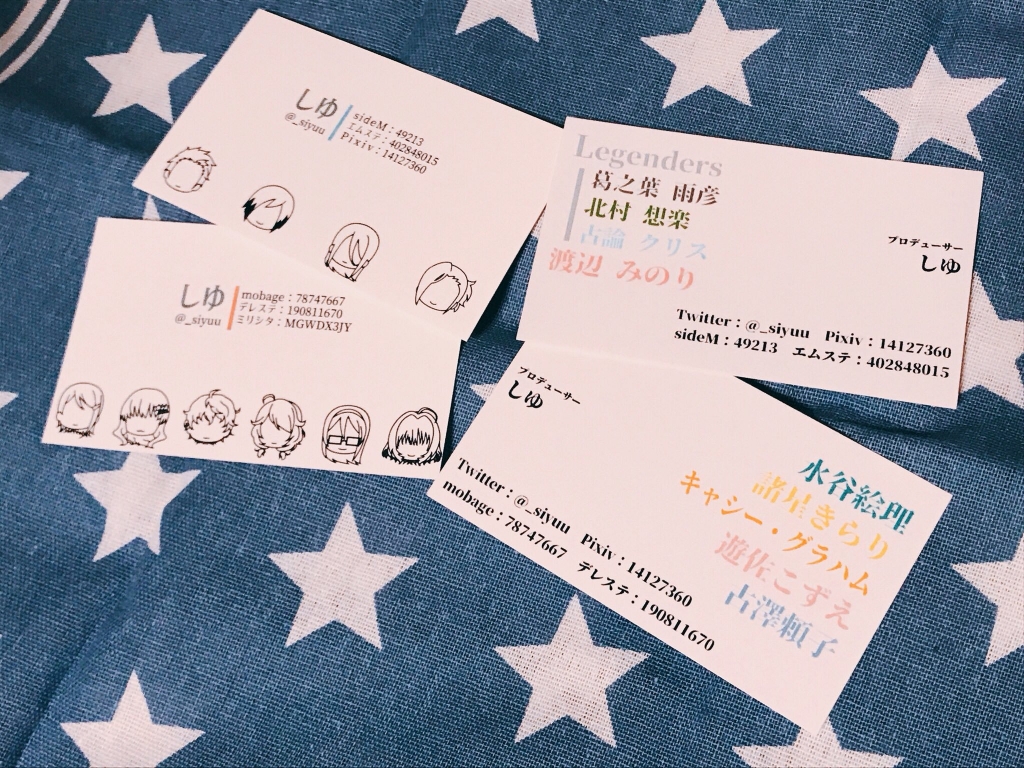 しゆ
@_siyuu
sideM：49213
エムステ：402848015
Pixiv：14127360
Legenders
葛之葉 雨彦
北村 想楽
古論 クリス
渡辺 みのり
プロデューサー
しゆ
Twitter：@_siyuu Pixiv：14127360
sideM：49213 エムステ：402848015
しゆ
@_siyuu
mobage：78747667
デレステ：190811670
ミリシタ：MGWDX3JY
プロデューサー
しゆ
Twitter：@_siyuu Pixiv：14127360
mobage：78747667 デレステ：190811670
水谷絵理
諸星きらり
キャシー・グラハム
遊佐こずえ
古澤頼子